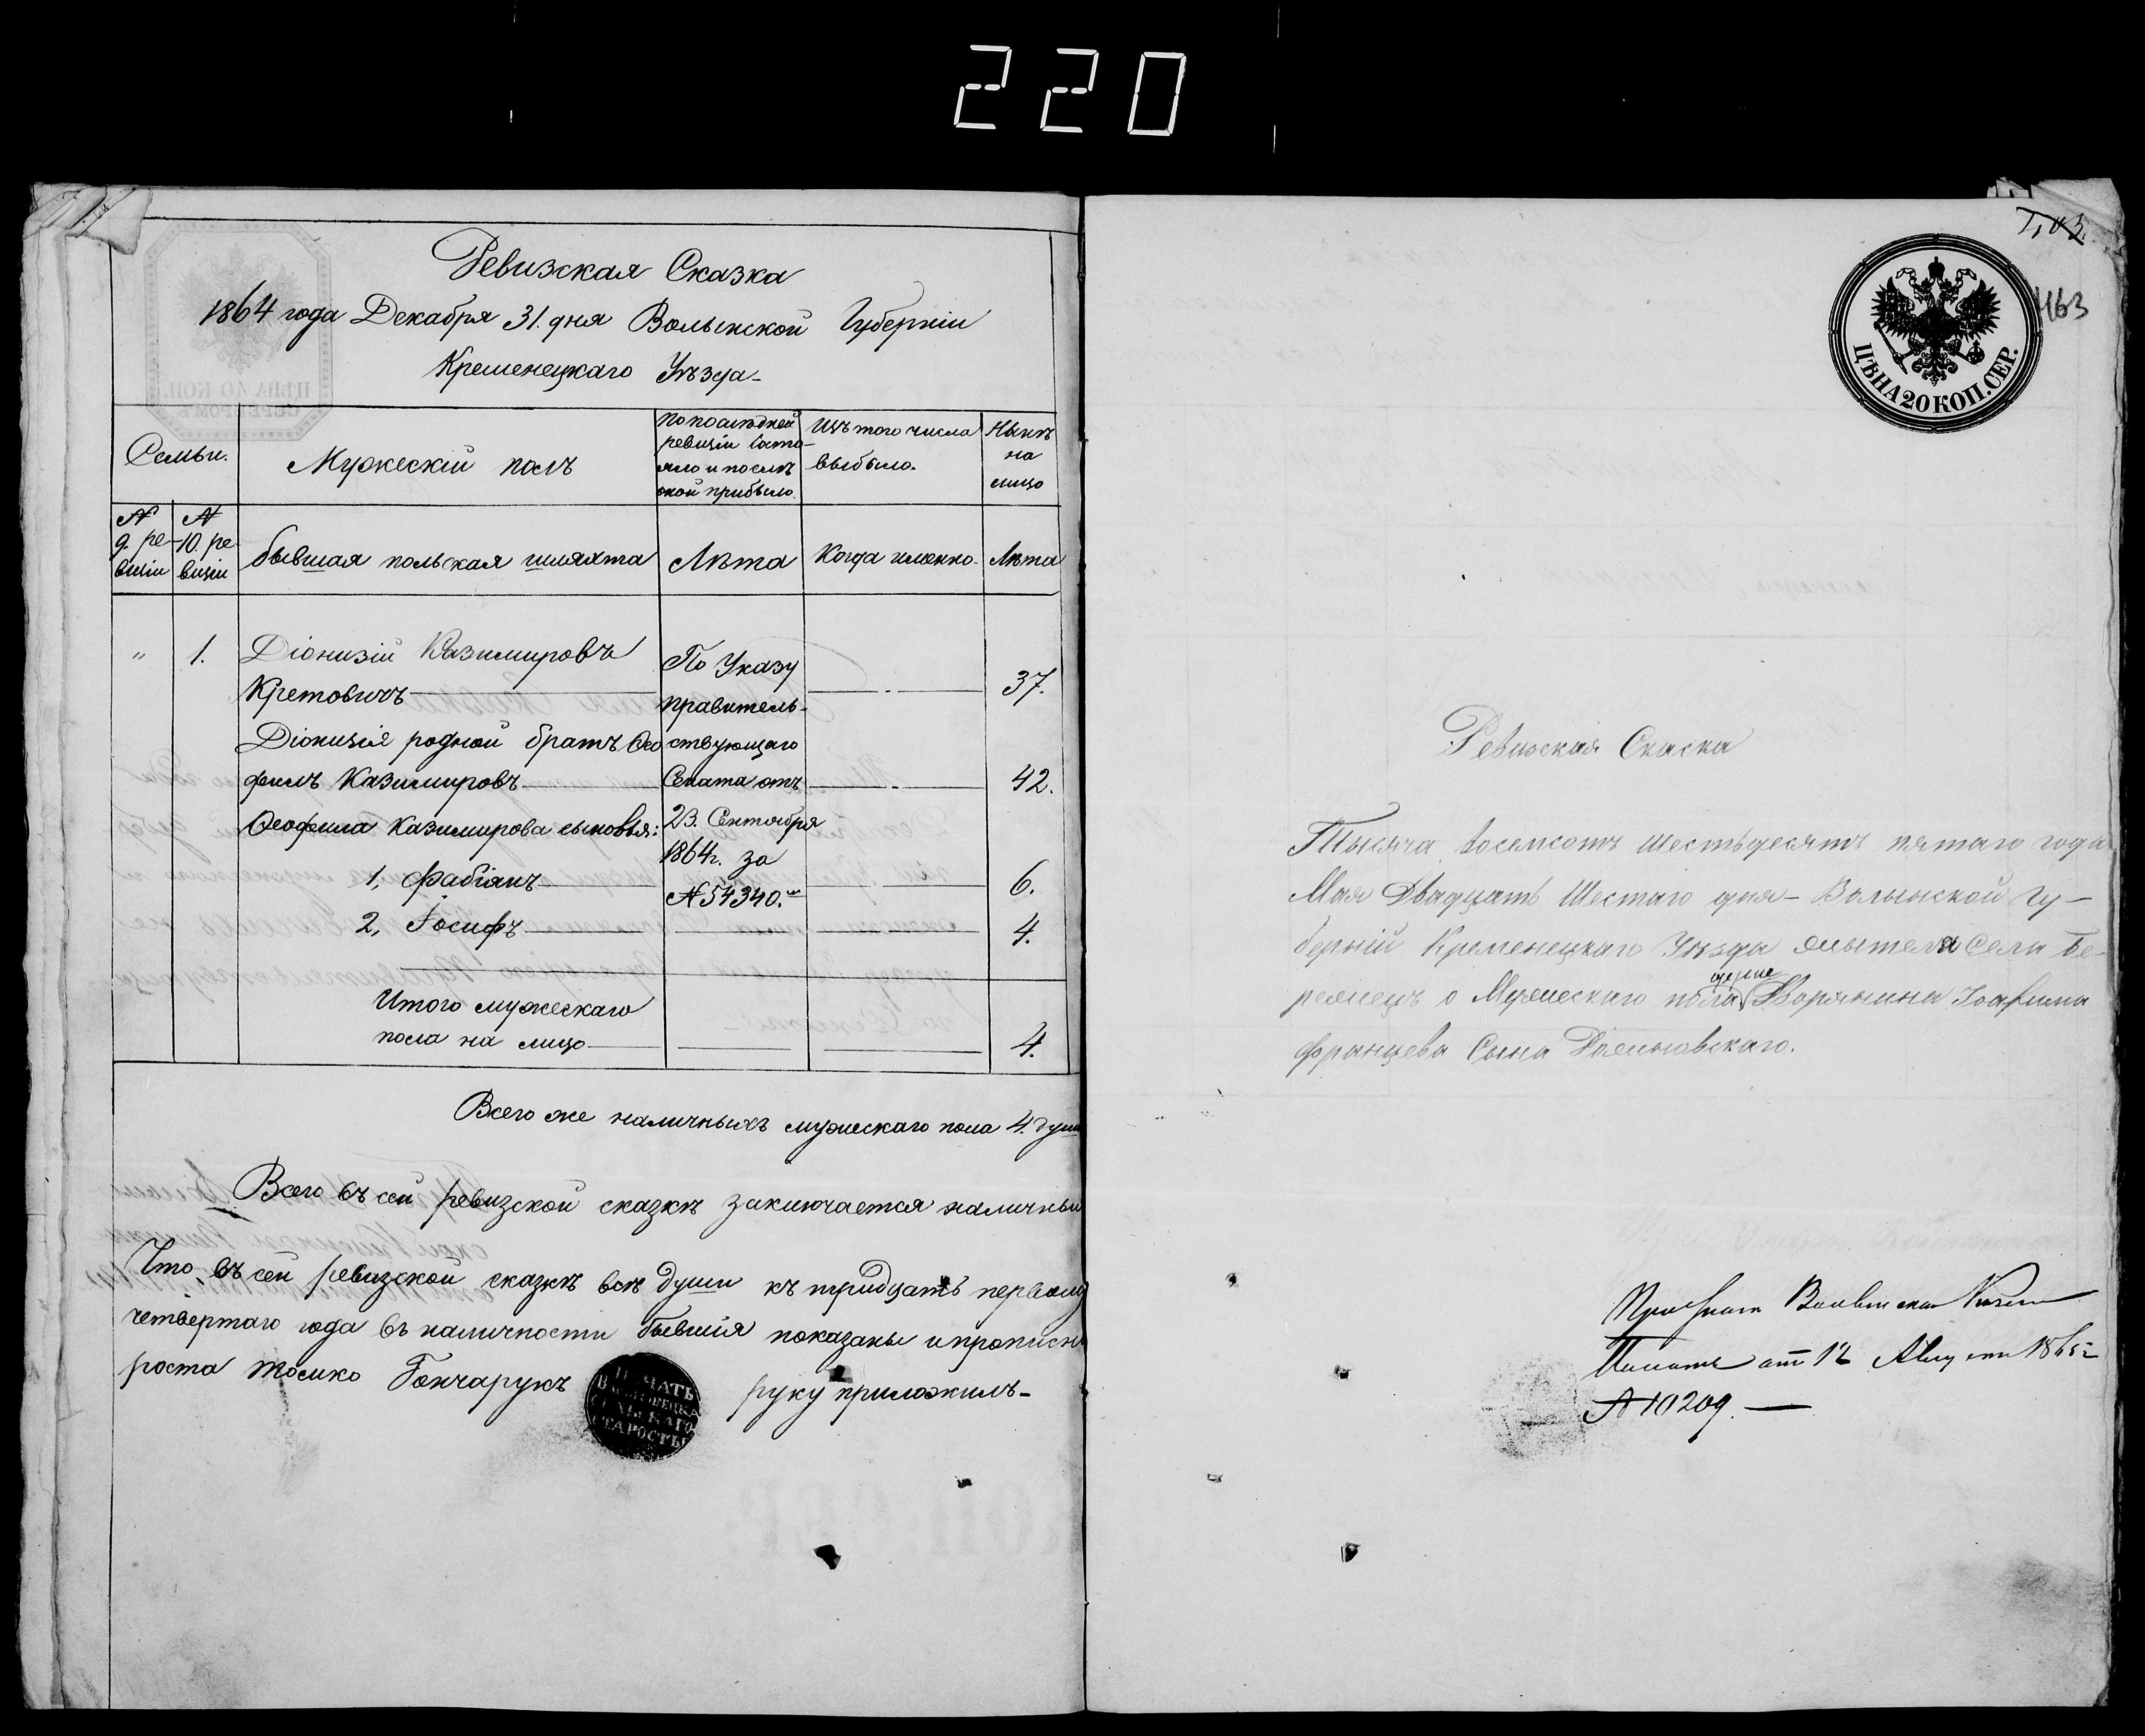 220
Ревизская Сказка
1864 года Декабря 31. дня Волынской Губерніи
Кременецкаго Уѣзда
Семьи.
Мужескій полъ
По послѣдней
ревизіи состо-
яло и послѣ
оной прибыло.
Изъ того числа
выбыло.
Нынѣ
на
лицо
№ 9. ре-
визіи
№ 10. ре-
визіи
бывшая польская шляхта
Лѣта
Когда именно.
Лѣта
" 1. Діонизій Казимировъ
Кретовичъ 37.
Діонизія родной братъ Ѳео
филъ Казимировъ 42.
Ѳеофила Казимирова сыновья:
1, Фабіянъ 6.
2, Іосифъ 4.
По Указу
правитель-
ствующаго
Сената отъ
23. Сентября
1864г. за
№ 54340.
Итого мужескаго
пола на лицо 4.
Всего же наличныхъ мужескаго пола 4. души
Всего въ сей ревизской сказкѣ заключается наличны
Что въ сей ревизской сказкѣ всѣ души къ тридцать первому
четвертаго года въ наличности бывшія показаны и прописн
роста Гончарукъ руку приложилъ
ПЕЧАТЬ
СТАРОСТЫ
463
ЦѢНА 20 КОП. СЕР.
Ревизская Скаска
Тысяча восемсотъ шестьдесятъ пятаго года
Мая Двадцать Шестаго дня Волынской Гу-
берніи Кременецкаго Уѣзда Села Бе-
режецъ о Мужескаго пола Дворянина
Францева Сына
12 Августа 1865
№ 10209.